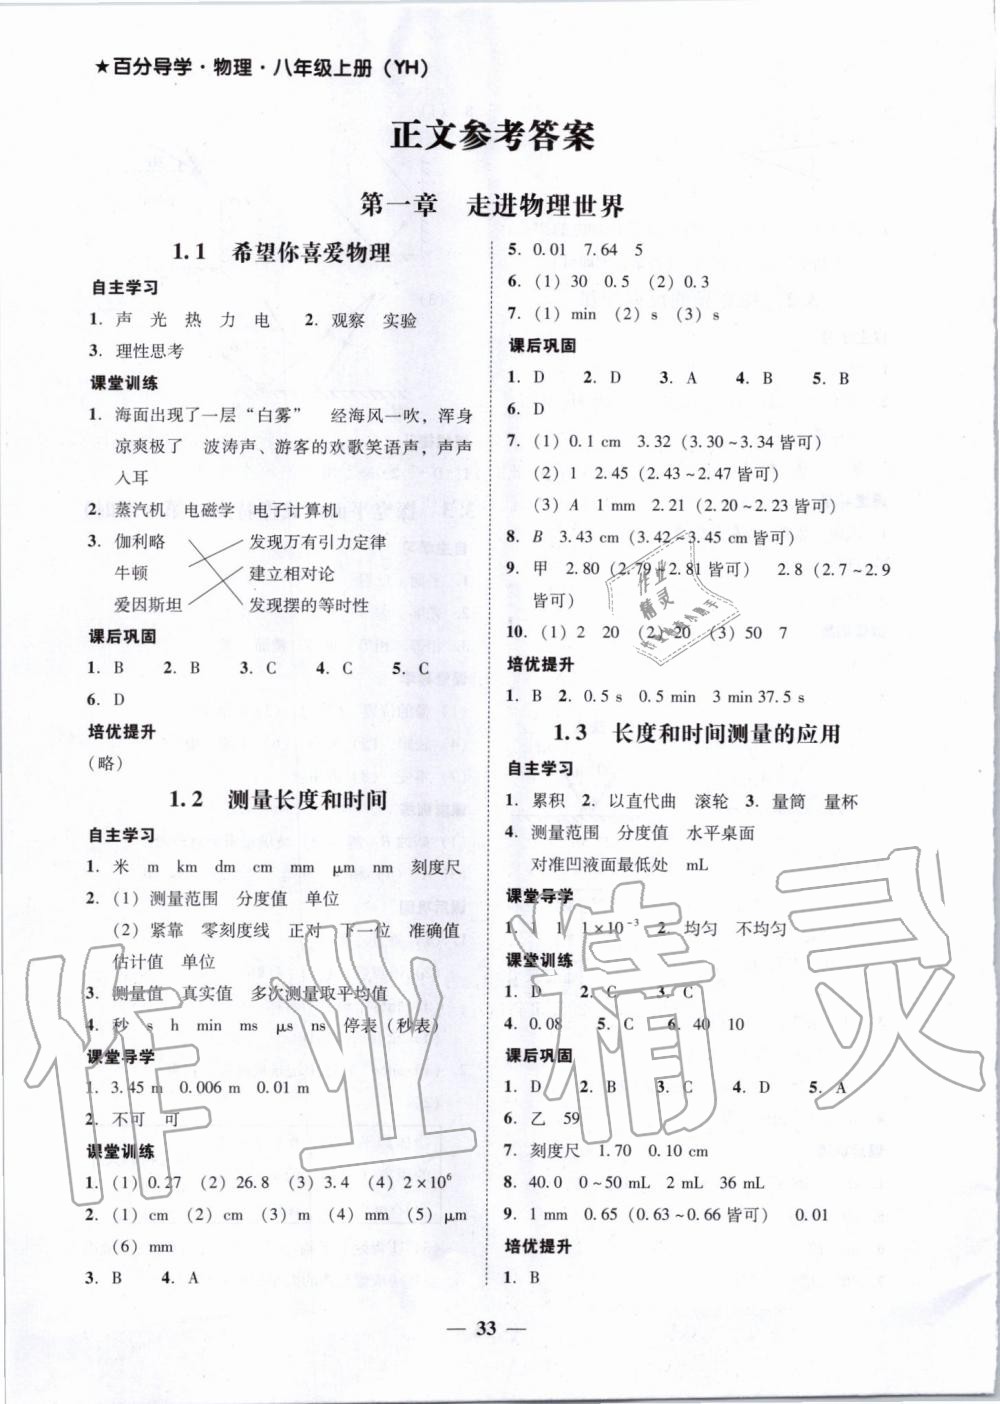 ★百分导学·物理·八年级上册（YH）
正文参考答案
第一章　走进物理世界
1.1　希望你喜爱物理
自主学习
1. 声　光　热　力　电　2. 观察　实验
3. 理性思考
课堂训练
1. 海面出现了一层“白雾”　经海风一吹，浑身
凉爽极了　波涛声、游客的欢歌笑语声，声声
入耳
2. 蒸汽机　电磁学　电子计算机
3. 伽利略　发现万有引力定律
牛顿　建立相对论
爱因斯坦　发现摆的等时性
课后巩固
1. B　2. B　3. C　4. C　5. C
6. D
培优提升
（略）
1.2　测量长度和时间
自主学习
1. 米　m　km　dm　cm　mm　μm　nm　刻度尺
2.（1）测量范围　分度值　单位
（2）紧靠　零刻度线　正对　下一位　准确值
估计值　单位
3. 测量值　真实值　多次测量取平均值
4. 秒　s　h　min　ms　μs　ns　停表（秒表）
课堂导学
1. 3.45 m　0.006 m　0.01 m
2. 不可　可
课堂训练
1.（1）0.27　（2）26.8　（3）3.4　（4）2×10⁶
2.（1）cm　（2）cm　（3）m　（4）mm　（5）μm
（6）mm
3. B　4. A
5. 0.01　7.64　5
6.（1）30　0.5　（2）0.3
7.（1）min　（2）s　（3）s
课后巩固
1. D　2. D　3. A　4. B　5. B
6. D
7.（1）0.1 cm　3.32（3.30~3.34皆可）
（2）1　2.45（2.43~2.47皆可）
（3）A　1 mm　2.21（2.20~2.23皆可）
8. B　3.43 cm（3.42~3.45 cm皆可）
9. 甲　2.80（2.79~2.81皆可）　2.8（2.7~2.9
皆可）
10.（1）2　20　（2）20　（3）50　7
培优提升
1. B　2. 0.5 s　0.5 min　3 min 37.5 s
1.3　长度和时间测量的应用
自主学习
1. 累积　2. 以直代曲　滚轮　3. 量筒　量杯
4. 测量范围　分度值　水平桌面
对准凹液面最低处　mL
课堂导学
1. 1　1　1×10⁻³　2. 均匀　不均匀
课堂训练
1. D　2. C　3. C
4. 0.08　5. C　6. 40　10
课后巩固
1. D　2. B　3. C　4. D　5. A
6. 乙　59
7. 刻度尺　1.70　0.10 cm
8. 40.0　0~50 mL　2 mL　36 mL
9. 1 mm　0.65（0.63~0.66皆可）　0.01
培优提升
1. B
— 33 —
作业精灵
作业
精灵